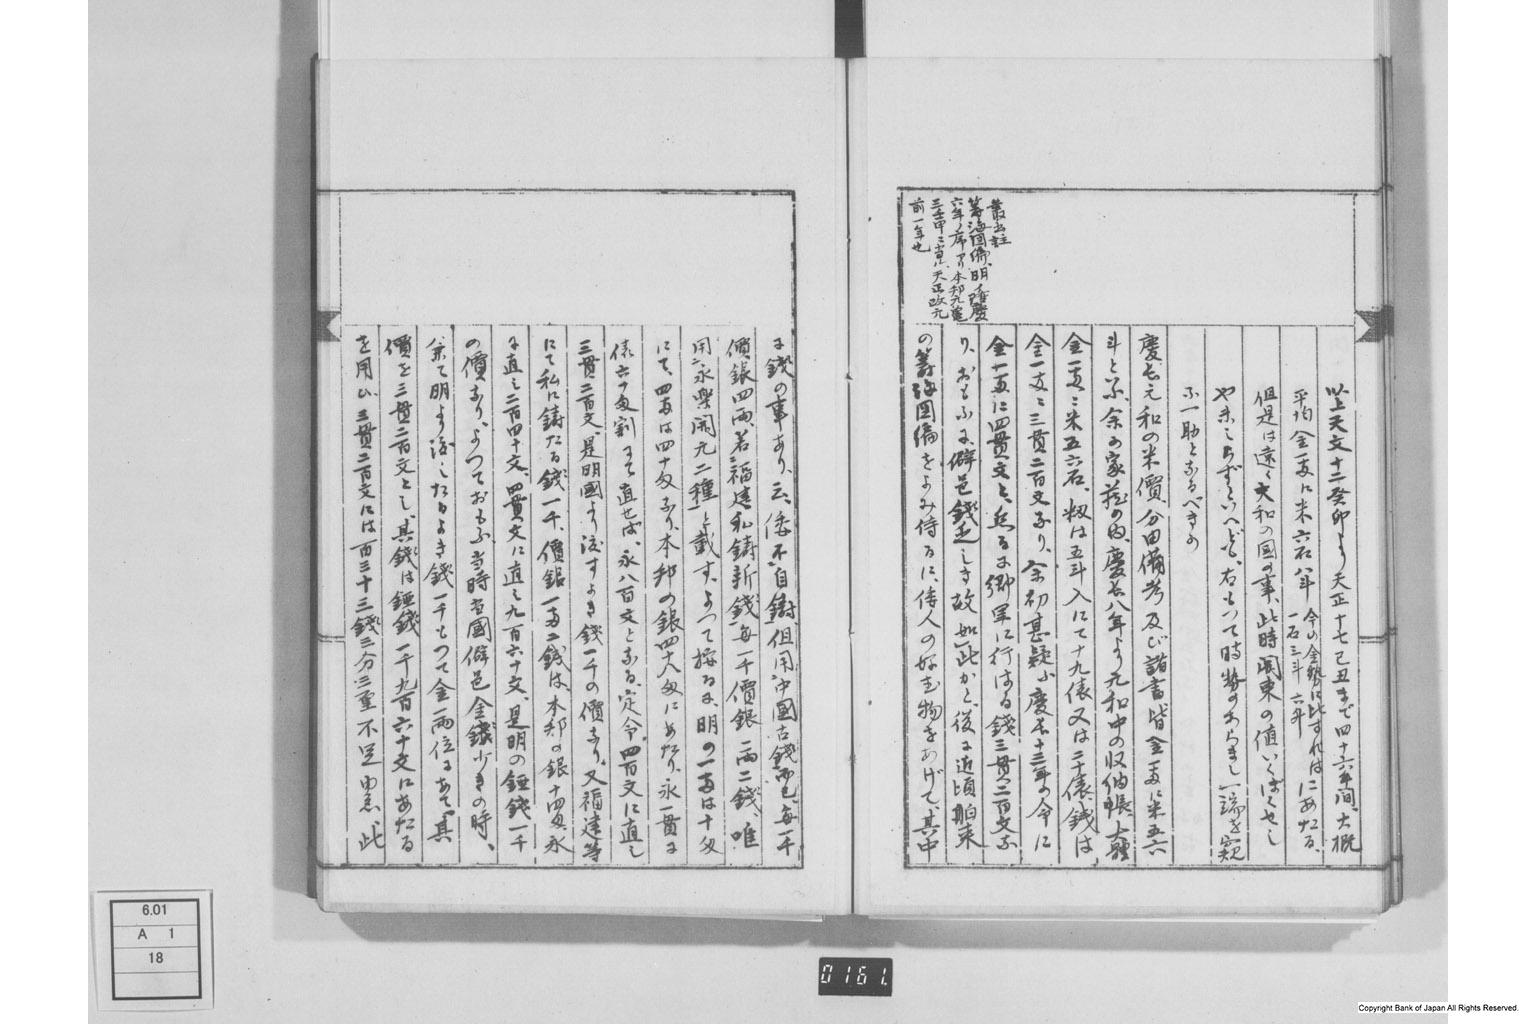 以上天文十二癸卯より天正十七己丑まで四十六年間、大概
平均金一両に米六石八斗 今の金勢に比すればにあたる、
一石三斗六升
但是は遠く大和の国の事、此時関東の値いくばくせし
や未しらずといへども、右もつて時勢のあらまし一端を窺
ふ一助となるべきか
慶長元和の米價、分田備考及び諸書皆金一両に米五六
斗と云、余の家蔵の内、慶長八年より元和中の収納帳、大躰
金一両ニ米五六石、籾は五斗入にて十九俵又は二十俵、錢は
金一両ニ三貫二百文なり、余初甚疑ふ慶長十三年の令に
金一両に四貫文と、然るに郷里に行はる錢三貫二百文な
り、おもふに僻邑錢乏しき故如此かと、後に近頃舶来
の籌海図編をよみ侍るに、倭人の好む物をあげて、其中
叢書註
籌海図編、明ノ隆慶
六年ノ序アリ本邦元亀
三壬申ニ當ル、天正改元
前一年也
に錢の事あり、云、倭不自鑄、但用中國古錢而已、毎一千
價銀四両、若福建私鑄新錢、毎一千價銀一両二錢、唯
用永樂開元二種と載す、よつて按るに、明の一両は十匁
にて、四両は四十匁なり、本邦の銀四十八匁にあたり、永一貫は
俵六十匁割にて直せば、永八百文となる、定令四百文に直し
三貫二百文、是明國より渡すよき錢一千の價なり、又福建等
にて私に鑄たる錢一千、價銀一両二錢は、本邦の銀十四匁、永
に直し二百四十文、四貫文に直し九百六十文、是明の錘錢一千
の價なり、よつておもふ、当時吾國僻邑金錢少きの時、
兼て明より渡したるよき錢一千もつて金一両位にあて、其
價を三貫二百文とし、其錢は錘錢一千九百六十文にあたる
を用ひ、三貫二百文には一百三十三錢三分三釐不足
此
6.01
A 1
18
0161.
Copyright Bank of Japan All Rights Reserved.